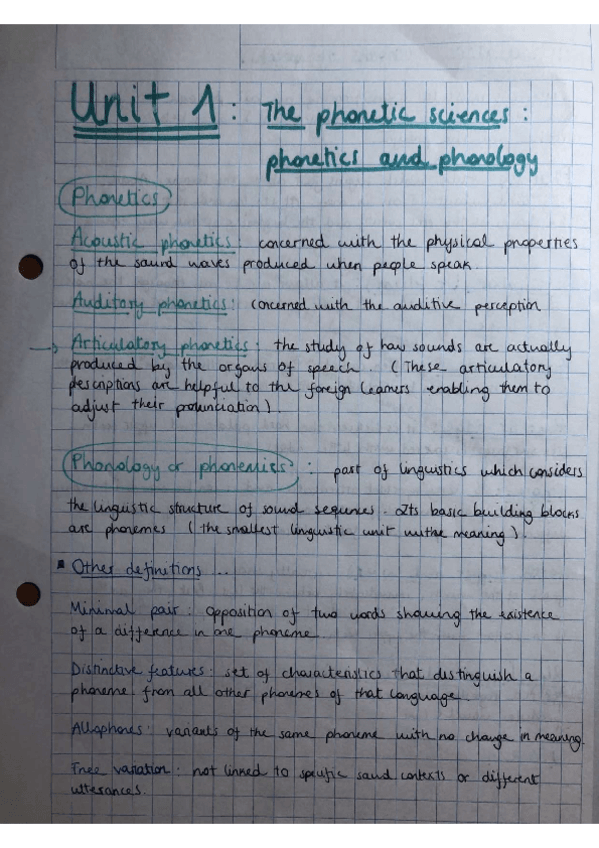 Unit 1 : The phonetic sciences :
phonetics and phonology
Phonetics
Acoustic phonetics : concerned with the physical properties
of the sound waves produced when people speak.
Auditory phonetics : concerned with the auditive perception
→ Articulatory phonetics : the study of how sounds are actually
produced by the organs of speech. (These articulatory
descriptions are helpful to the foreign learners enabling them to
adjust their pronunciation).
Phonology or phonemics : part of linguistics which considers
the linguistic structure of sound sequences. Its basic building blocks
are phonemes (the smallest linguistic unit withe meaning).
Other definitions ...
Minimal pair : opposition of two words showing the existence
of a difference in one phoneme.
Distinctive features : set of characteristics that distinguish a
phoneme from all other phonemes of that language.
Allophones : variants of the same phoneme with no change in meaning.
Free variation : not linned to specific sound contexts or different
utterances.